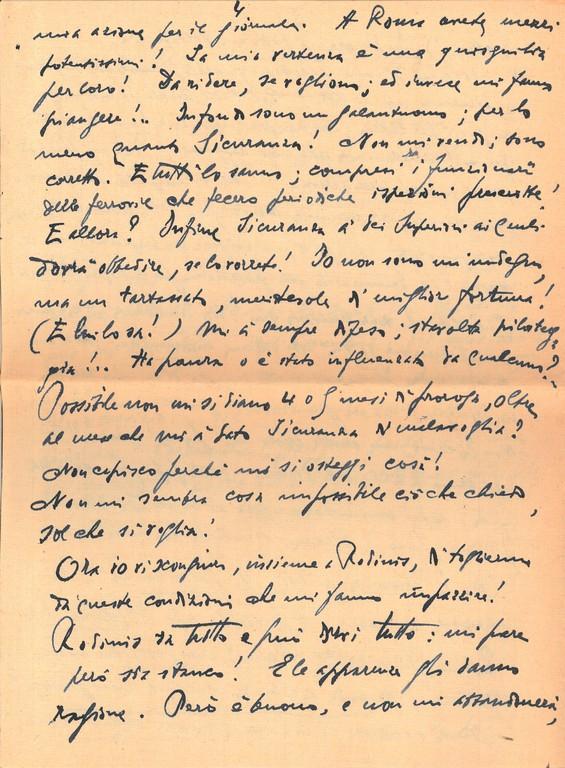 4
mia azione per il Giornale. A Roma avete mezzi
potentissimi! La mia vertenza è una quisquilia
per loro! Da ridere, se vogliono; ed invece mi fanno
piangere!.. In fondo sono un galantuomo; per lo
meno quanto Sicuranza! Non mi vendo; sono
corretto. E tutti lo sanno; compresi i funzionarii
delle ferrovie che fecero periodiche ispezioni prescritte!
E allora? Infine Sicuranza à dei Superiori ai quali
dovrà obbedire, se lo vorrete! Io non sono un indegno,
ma un tartassato, meritevole di miglior fortuna!
(E lui lo sa!) Mi à sempre difeso; stavolta pilateg-
gia!.. Ha paura o è stato influenzato da qualcuno?
Possibile non mi si diano 4 o 5 mesi di proroga, oltre
al mese che mi à dato Sicuranza di malavoglia?
Non capisco perché mi si osteggi così!
Non mi sembra cosa impossibile ciò che chiedo,
sol che si voglia!
Ora io vi scongiuro, insieme a Rodinis, di togliermi
da queste condizioni che mi fanno impazzire!
Rodinis sa tutto e può dirvi tutto: mi pare
però sia stanco! E le apparenze gli danno
ragione. Però è buono, e non mi abbandonerà,